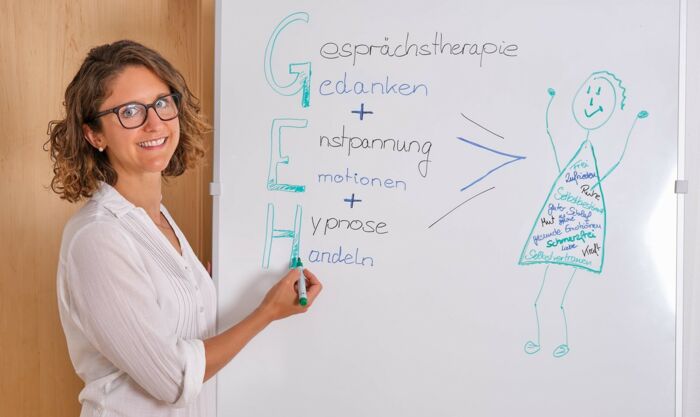 Gesprächstherapie
Gedanken
+
Enstpannung
Emotionen
+
Hypnose
Handeln
Frei
Zufrieden
Ruhe
Selbstbestimmt
guter Schlaf
Mut
gesunde Emotionen
schmerzfrei
Liebe
Kraft
Selbstvertrauen